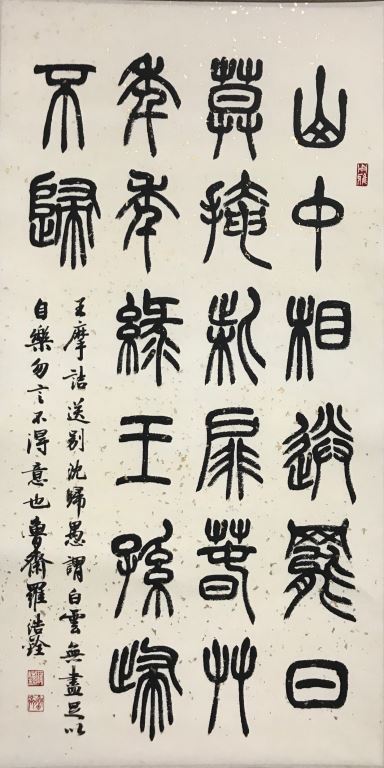 山中相送罷日
莫掩柴扉春草
年年綠王孫歸
不歸
王摩詰送别沈歸愚謂白雲無盡足以
自樂勿言不得意也魯齋羅浩銓